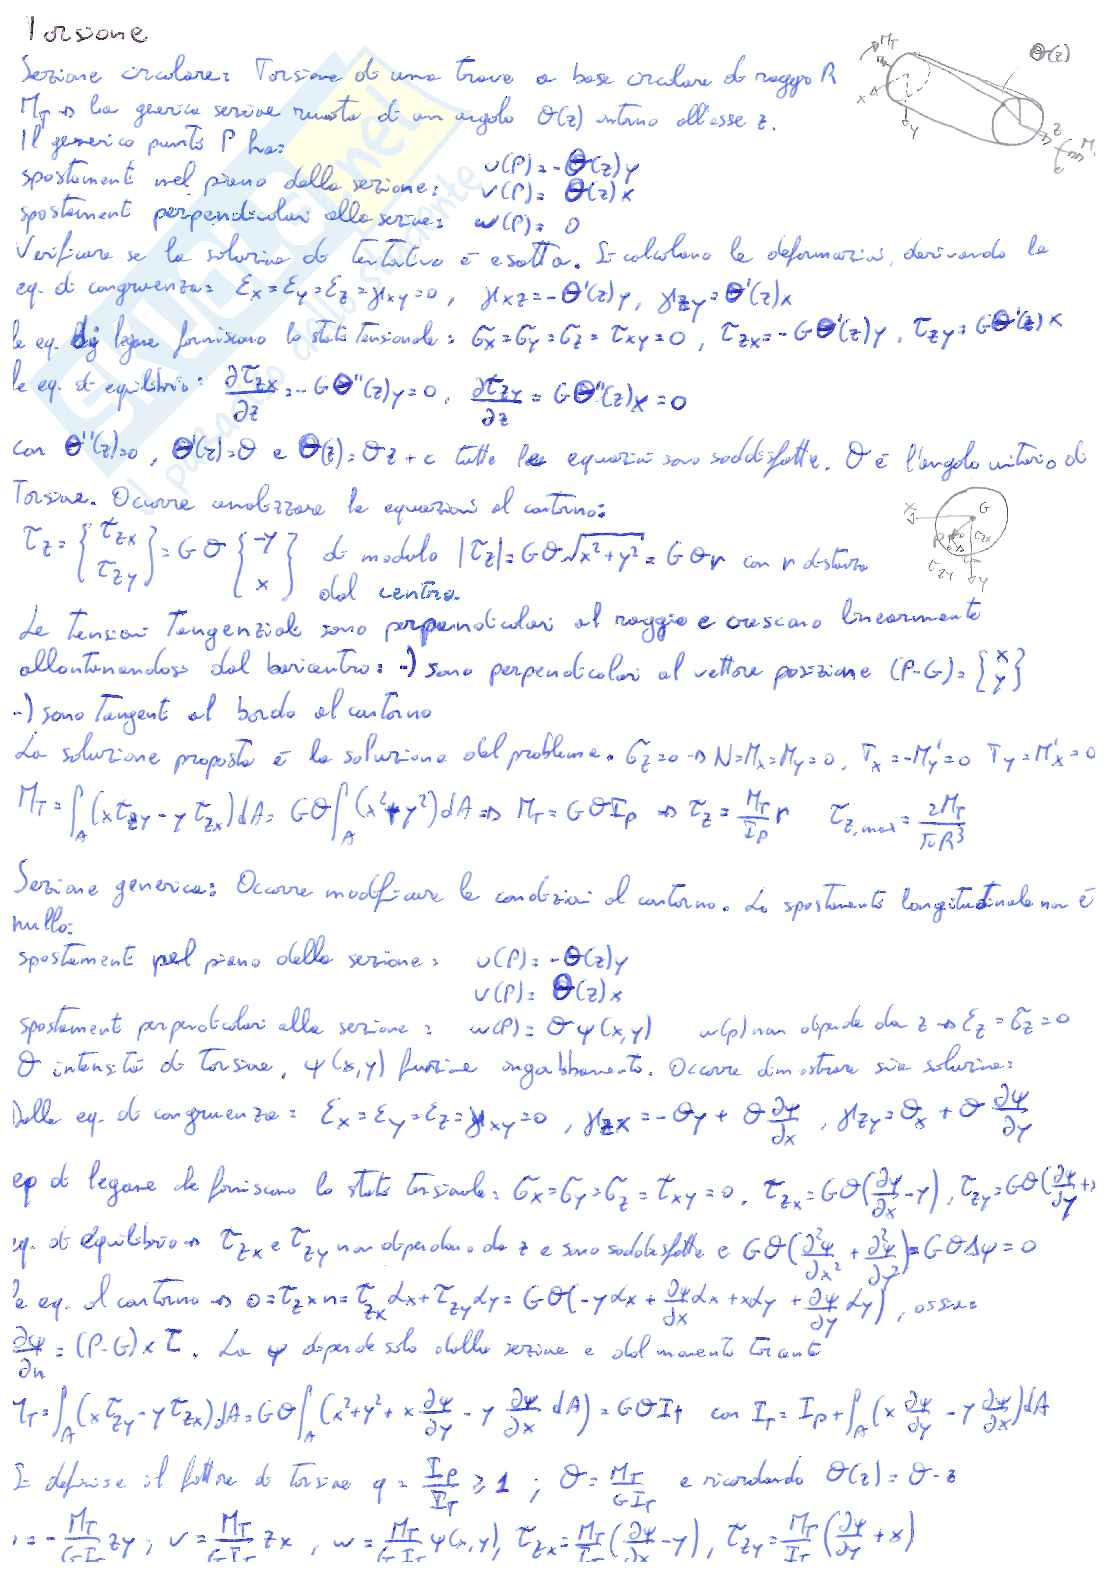 Torsione
Sezione circolare: Torsione di una trave a base circolare di raggio R
M_T → la generica sezione ruota di un angolo Θ(z) intorno all'asse z.
Il generico punto P ha:
spostamenti nel piano della sezione: u(P)=-Θ(z)y
v(P)= Θ(z)x
spostamenti perpendicolari alla sezione: w(P)= 0
Verificare se la soluzione di tentativo è esatta. Si calcolano le deformazioni, derivando le
eq. di congruenza: εx=εy=εz=γxy=0, γxz=-Θ'(z)y, γzy=Θ'(z)x
le eq. di legame forniscono lo stato tensionale: σx=σy=σz=τxy=0, τzx=-GΘ'(z)y, τzy=GΘ'(z)x
le eq. di equilibrio: ∂τzx/∂z=-GΘ''(z)y=0, ∂τzy/∂z=GΘ''(z)x=0
con Θ''(z)=0, Θ'(z)=θ e Θ(z)=θz+c tutte le equazioni sono soddisfatte. θ è l'angolo unitario di
Torsione. Occorre analizzare le equazioni al contorno:
τz={τzx τzy}=Gθ{-y x} di modulo |τz|=Gθ√(x²+y²)=Gθr con r distanza
dal centro.
Le tensioni tangenziali sono perpendicolari al raggio e crescano linearmente
allontanandosi dal baricentro: -) sono perpendicolari al vettore posizione (P-G)={x y}
-) sono tangenti al bordo al contorno
La soluzione proposta è la soluzione del problema. σz=0 → N=Mx=My=0, Tx=-My'=0 Ty=Mx'=0
M_T=∫_A(xτzy-yτzx)dA=Gθ∫_A(x²+y²)dA → M_T=GθI_p → τz=M_T/I_p r τz,max=2M_T/πR³
Sezione generica: Occorre modificare le condizioni al contorno. Lo spostamento longitudinale non è
nullo:
spostamenti nel piano della sezione: u(P)=-Θ(z)y
v(P)= Θ(z)x
spostamenti perpendicolari alla sezione: w(P)=θψ(x,y) w(p) non dipende da z → εz=σz=0
θ intensità di torsione, ψ(x,y) funzione ingobbamento. Occorre dimostrare sia soluzione:
Dalle eq. di congruenza: εx=εy=εz=γxy=0, γzx=-θy+θ ∂ψ/∂x, γzy=θx+θ ∂ψ/∂y
eq di legame che forniscono lo stato tensionale: σx=σy=σz=τxy=0, τzx=Gθ(∂ψ/∂x-y), τzy=Gθ(∂ψ/∂y+x
eq. di equilibrio → τzx e τzy non dipendono da z e sono soddisfatte e Gθ(∂²ψ/∂x²+∂²ψ/∂y²)=GθΔψ=0
le eq. al contorno → 0=τz×n=τzx αx+τzy αy=Gθ(-yαx+∂ψ/∂x αx+xαy+∂ψ/∂y αy), ossia:
∂ψ/∂n=(P-G)×τ. La ψ dipende solo dalla sezione e dal momento torcente
M_T=∫_A(xτzy-yτzx)dA=Gθ∫_A(x²+y²+x ∂ψ/∂y-y ∂ψ/∂x dA)=GθI_t con I_T=I_p+∫_A(x ∂ψ/∂y-y ∂ψ/∂x)dA
Si definisce il fattore di torsione q=I_p/I_T≥1; θ=M_T/GI_T e ricordando Θ(z)=θ·z
u=-M_T/GI_T zy; v=M_T/GI_T zx, w=M_T/GI_T ψ(x,y), τzx=M_T/I_T(∂ψ/∂x-y), τzy=M_T/I_T(∂ψ/∂y+x)